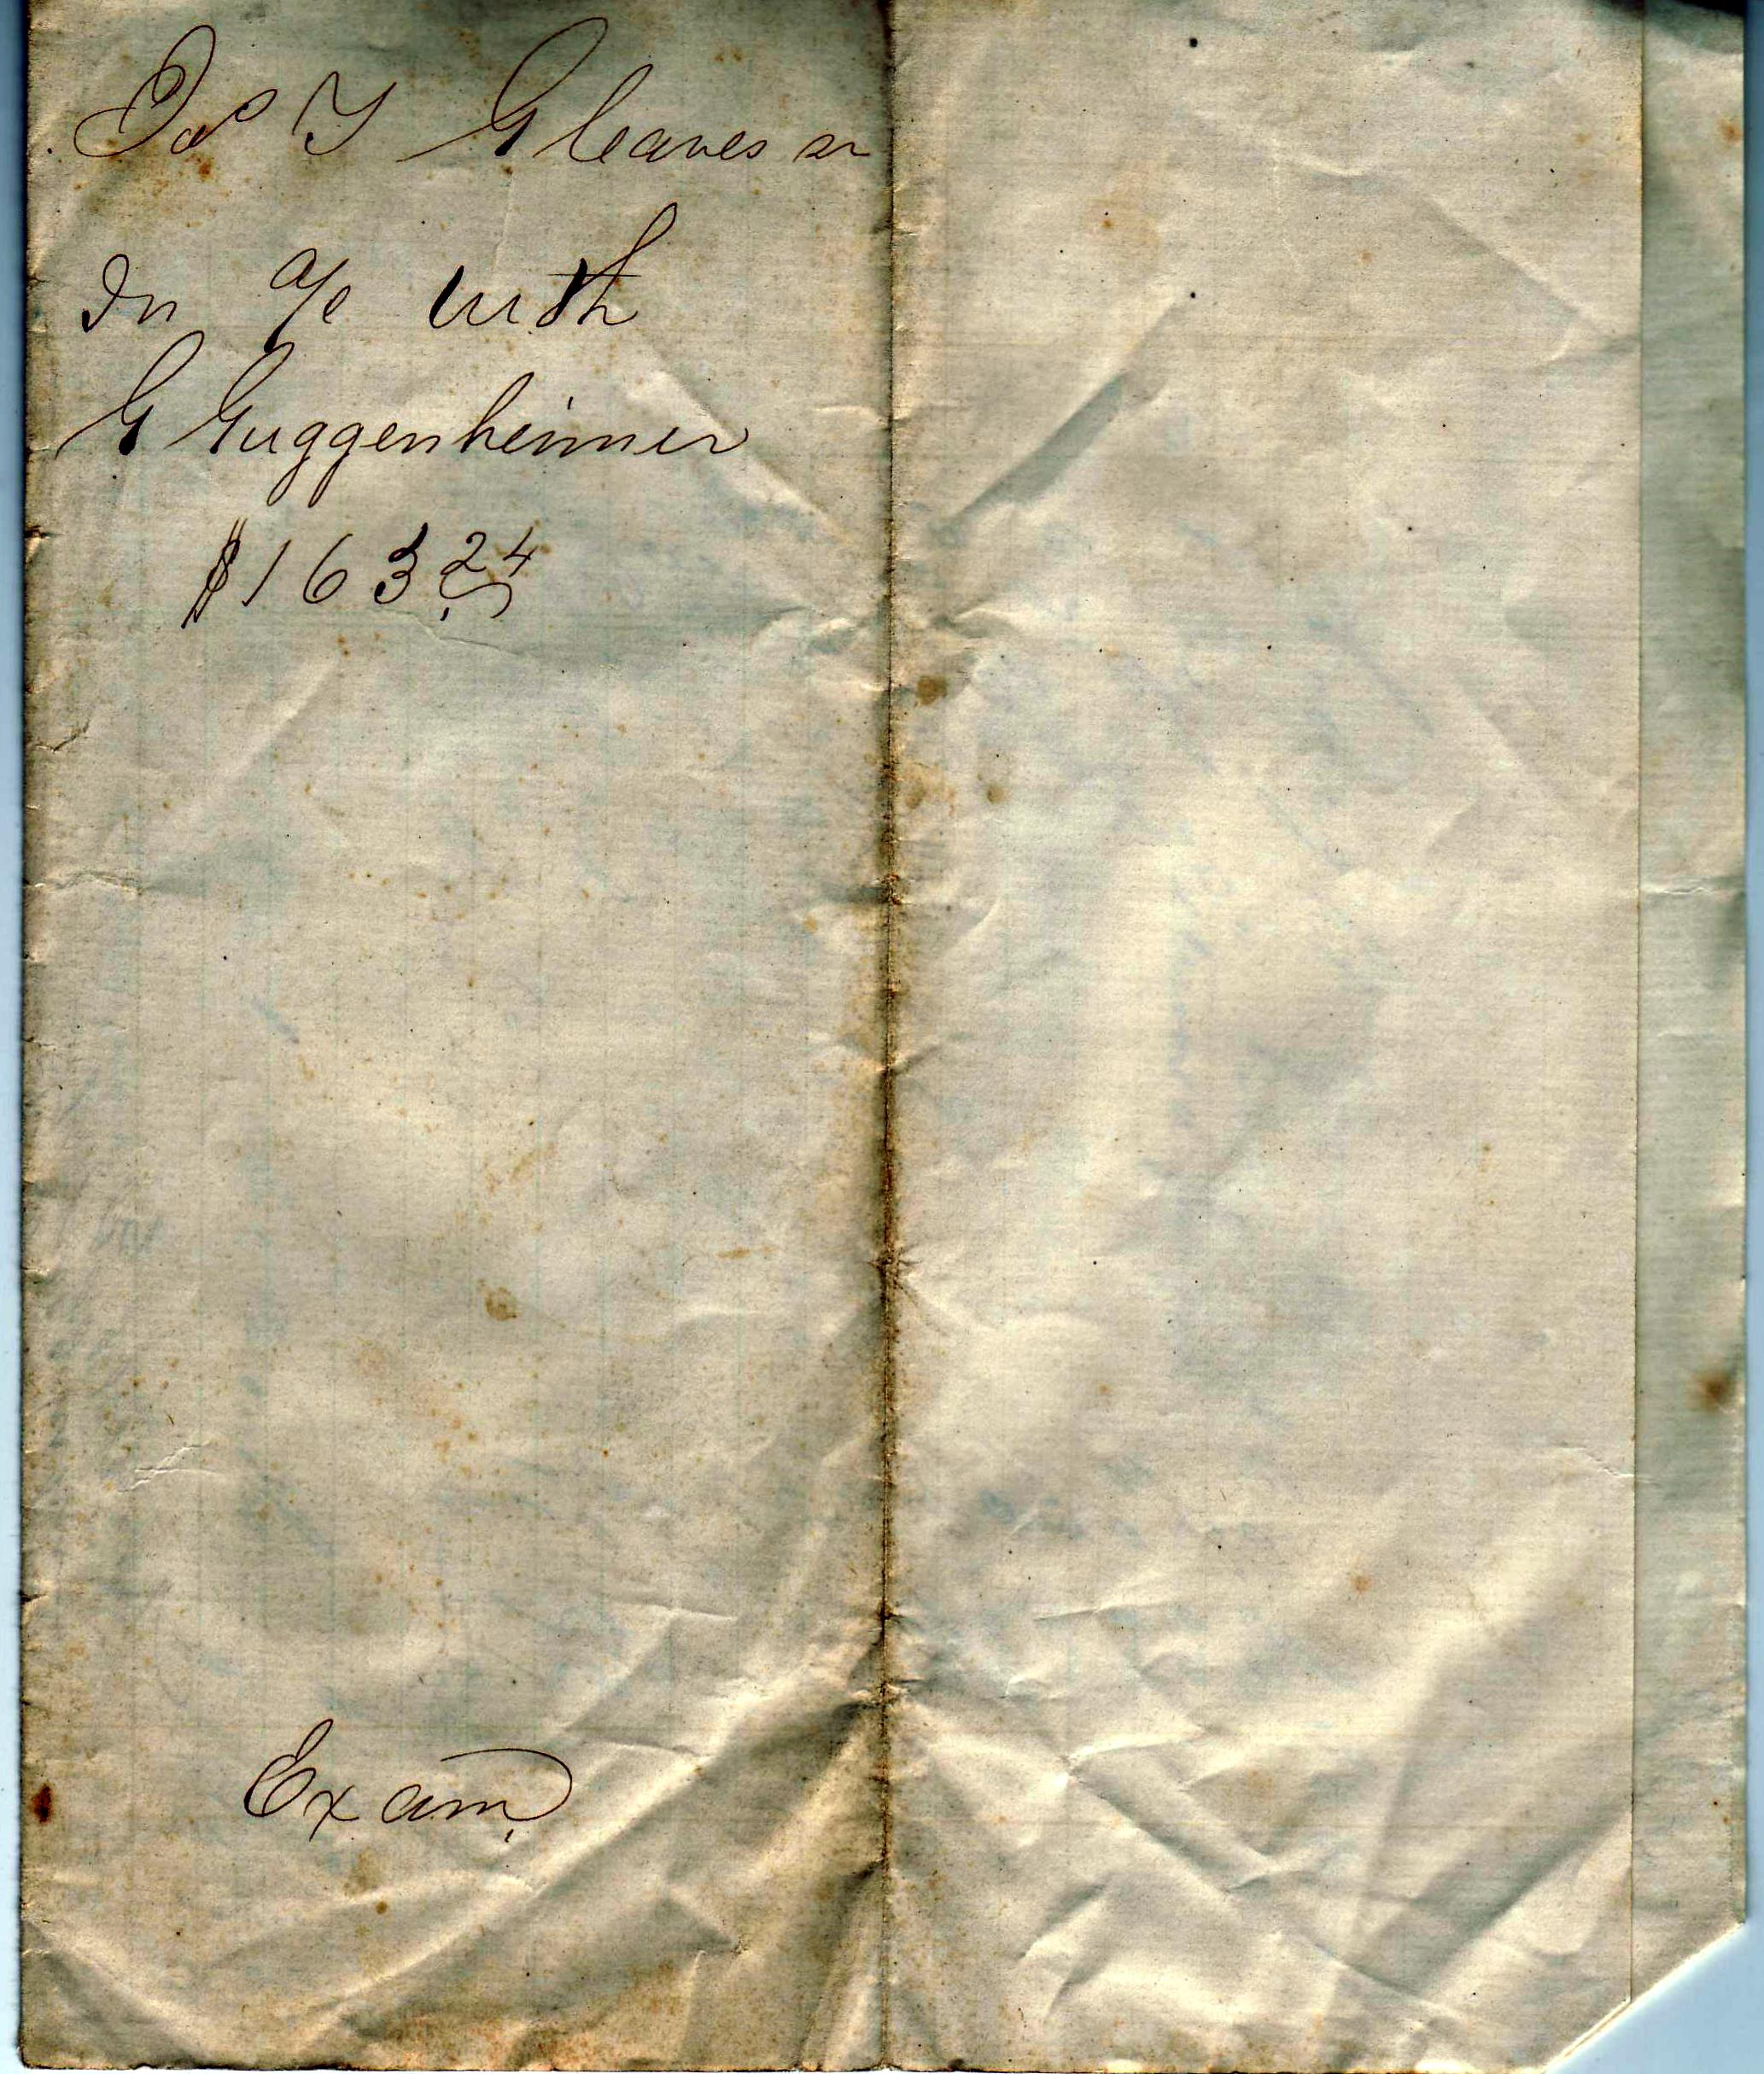 Jas T Gleaves sr
In a/c with
G Guggenheimer
$163 24
Exam